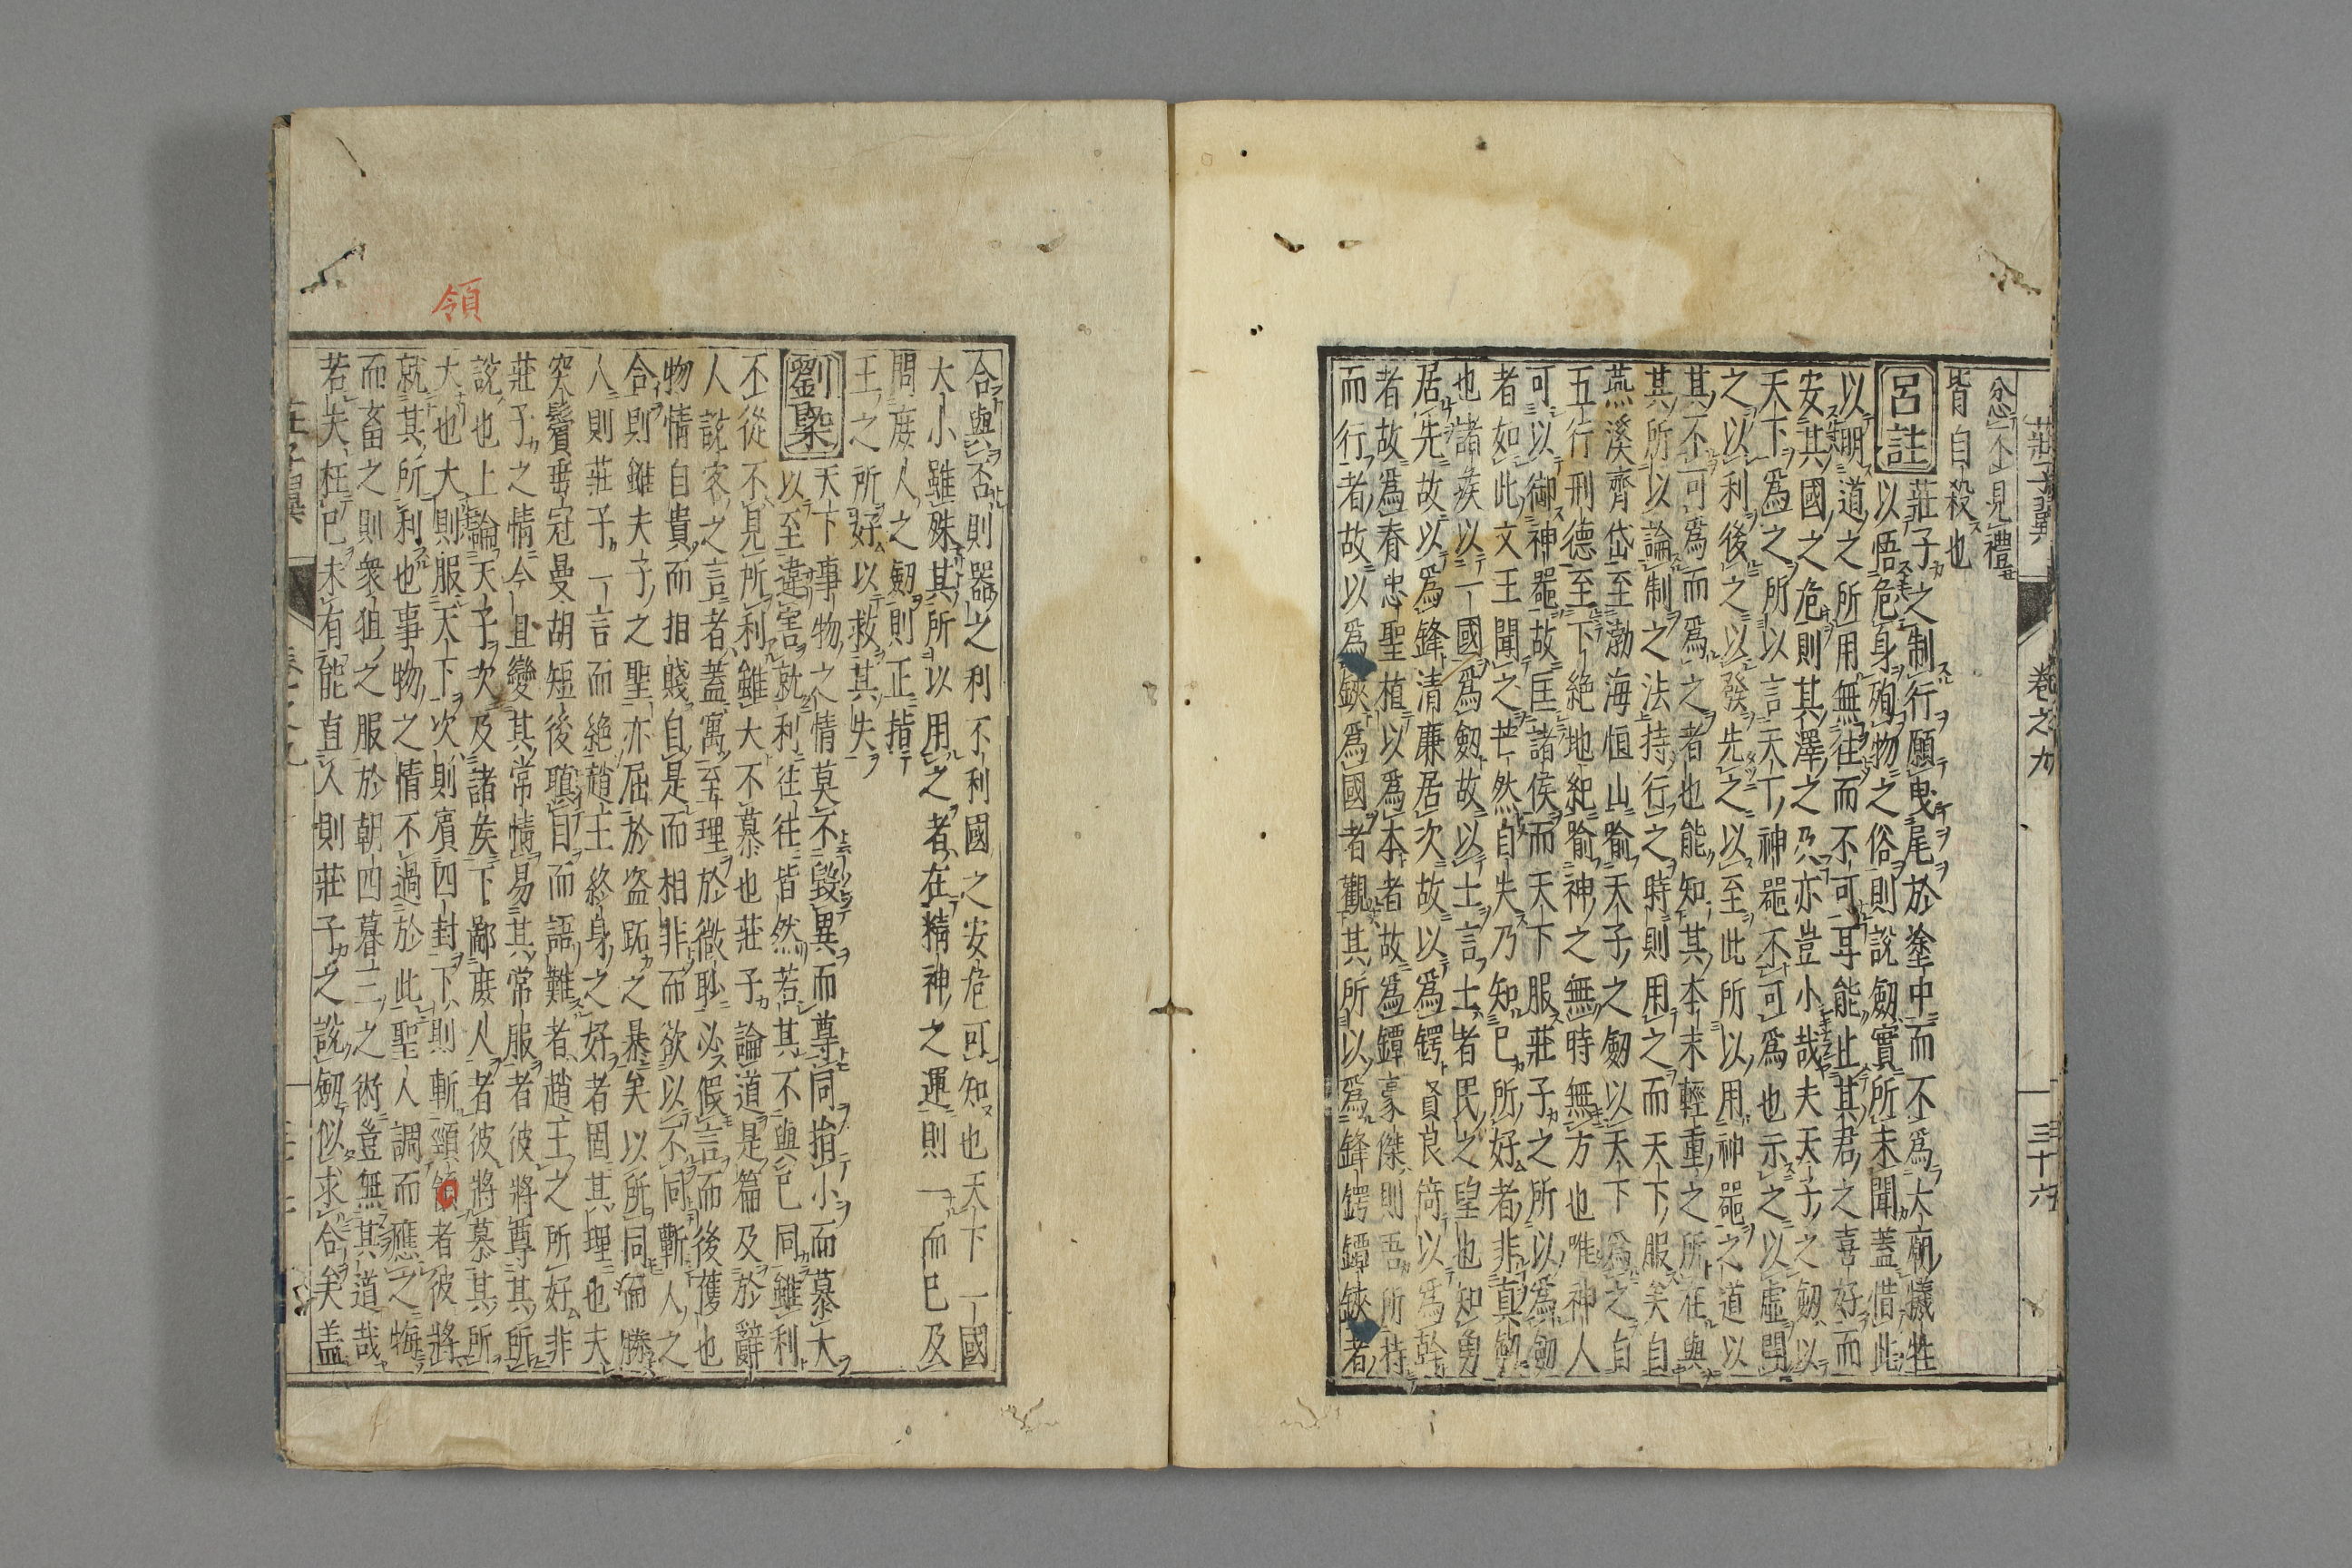 莊子翼 卷之九 三十六
忿不見禮
皆自殺也
呂註
莊子之制行願曳尾於塗中而不爲大廟犧牲
以悟危身殉物之俗則說劔實所未聞蓋借此
以明道之所用無往而不可耳能止其君之喜好而
安其國之危則其澤之及亦豈小哉夫天子之劔以
天下爲之所以言天下神噐不可爲也示之以虛開
之以利後之以發先之以至此所以用神噐之道以
其不可爲而爲之者也能知其本末輕重之所在與
其所以論制之法持行之時則用之而天下服矣自
燕溪齊岱至渤海恒山喻天子之劔以天下爲之自
五行刑德至下絶地紀喻神之無時無方也唯神人
可以御神噐故匡諸侯而天下服莊子之所以爲劔
者如此文王聞之芒然自失乃知已所好者非真劔
也諸侯以一國爲劔故以士言士者民之望也知勇
居先故以爲鋒清廉居次故以爲鍔賢良筒以爲幹
者故爲春忠聖植以爲本者故爲鐔豪傑則吾所持
而行者故以爲鋏爲國者觀其所以爲鋒鍔鐔鋏者
合與否則器之利不利國之安危可知也天下一國
大小雖殊其所以用之者在精神之運則一而已及
問庻人之劔則正指
王之所好以救其失
劉槩
天下事物之情莫不毀異而尊同揹小而慕大
以至違害就利往往皆然若其不與已同雖利
不從不見所利雖大不慕也莊子論道是篇及於辭
人說客之言者蓋寓至理於微耿必假言而後獲也
物情自貴而相賤自是而相非而欲以不同斬人之
合則雖夫子之聖亦屈於盗跖之暴矣以所同偏勝
人則莊子一言而絶趙王終身之好者固其理也夫
突鬢垂冠曼胡短後瞋目而語難者趙王之所好非
莊子之情今且變其常情易其常服者彼將尊其所
說也上論天子次及諸侯下鄙庻人者彼將慕其所
大也大則服天下次則賓四封下則斬頸領者彼將
就其所利也事物之情不過於此聖人調而應之悔
而畜之則衆狙之服於朝四暮三之術豈無其道哉
若夫枉已未有能直人則莊子之說劔似求合矣盖
領